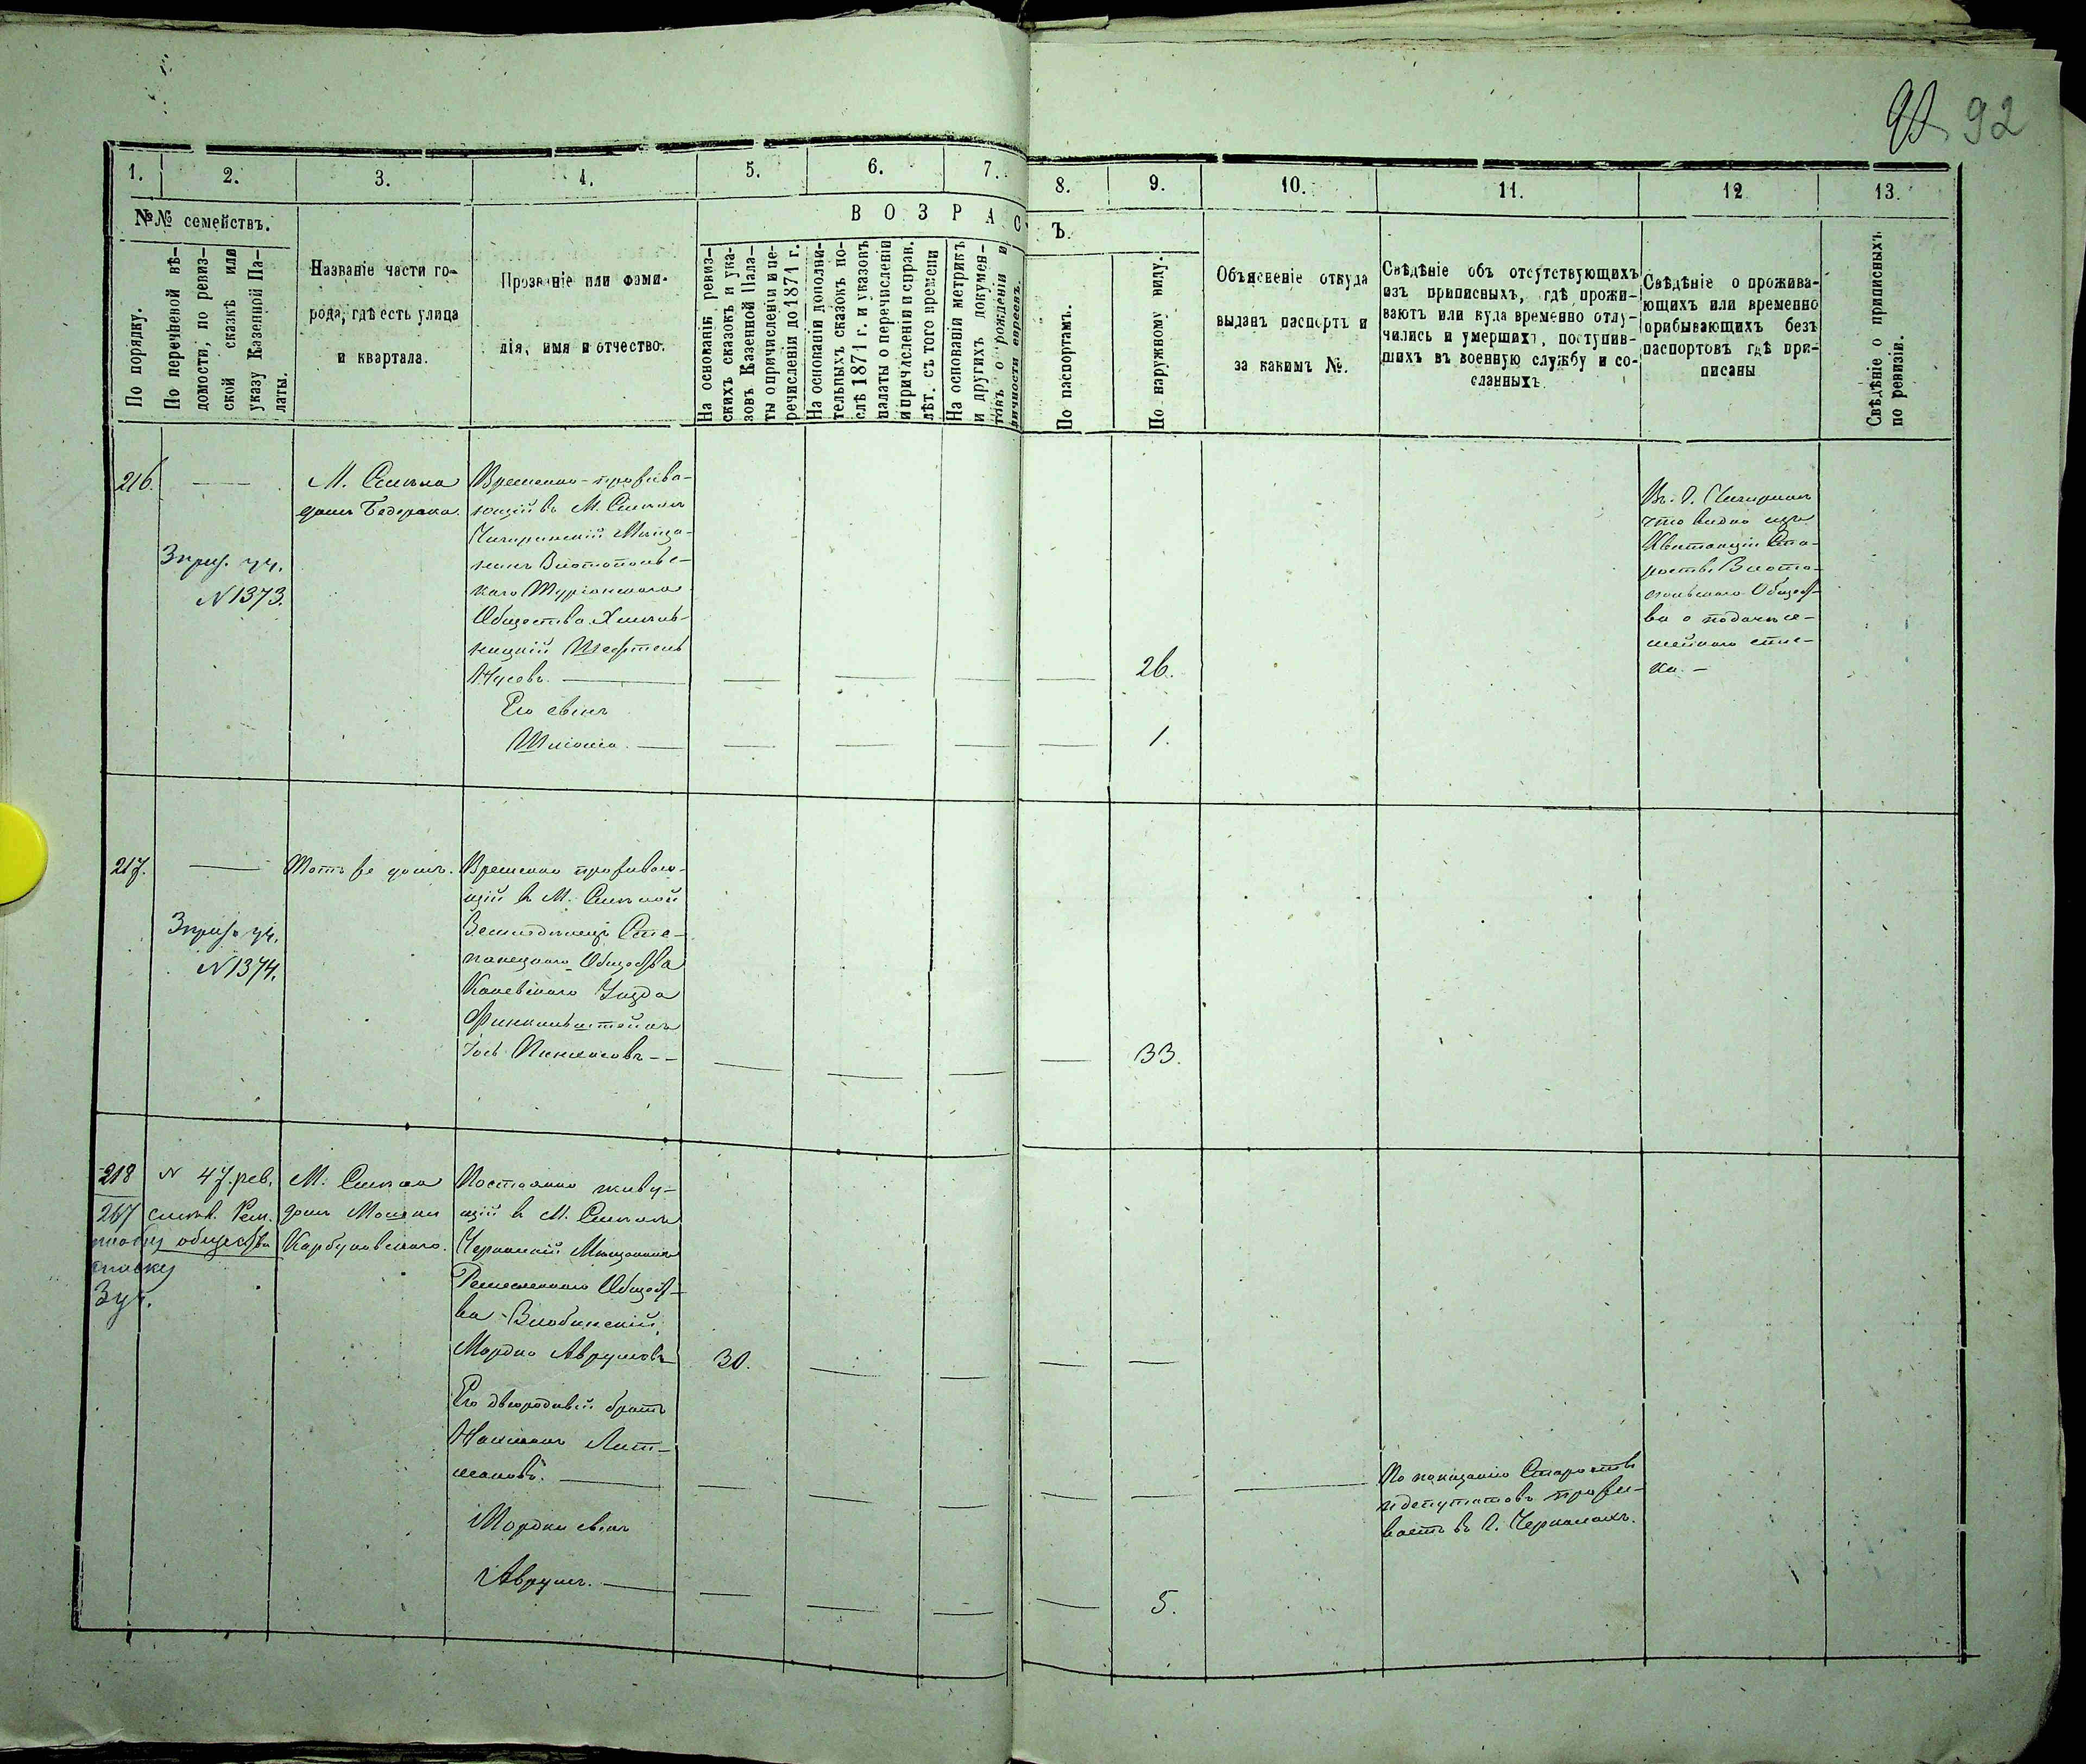 92
1.
2.
3.
4.
5.
6.
7.
8.
9.
10.
11.
12
13.
№№ семействъ.
По порядку.
По перечневой вѣ-
домости, по ревиз-
ской сказкѣ или
указу Казенной Па-
латы.
Названіе части го-
рода, гдѣ есть улица
и квартала.
Прозваніе или фами-
лія, имя и отчество.
ВОЗРАС
Ъ.
На основаніи ревиз-
скихъ сказокъ и ука-
зовъ Казенной Пала-
ты о причисленіи и пе-
речисленіи до 1871 г.
На основаніи дополни-
тельныхъ сказокъ по-
слѣ 1871 г. и указовъ
палаты о перечисленіи
и причисленіи и справ.
лѣт. съ того времени
На основаніи метрикъ
и другихъ докумен-
товъ о рожденіи и
личности евреевъ.
По паспортамъ.
По наружному виду.
Объясненіе откуда
выданъ паспортъ и
за какимъ №.
Свѣдѣніе объ отсутствующихъ
изъ приписныхъ, гдѣ прожи-
ваютъ или куда временно отлу-
чились и умершихъ, поступив-
шихъ въ военную службу и со-
сланныхъ
Свѣдѣніе о прожива-
ющихъ или временно
прибывающихъ безъ
паспортовъ гдѣ при-
писаны
Свѣдѣніе о приписныхъ
по ревизіи.
216.
—
3 приз. уч.
N 1373.
М. Смѣла
домъ Бодерака.
Временно-прожива-
ющій въ М. Смѣлѣ
Чигиринскій Мѣща-
нинъ Златопольс-
каго Туріянскаго
Общества Хмѣль-
ницкій
Нусовъ. —
Его сынъ
Шліома. —
26.
1.
Въ Г. Чигиринѣ
что видно изъ
Квитанціи Ста-
росты Злато-
польскаго Общест-
ва о подачѣ се-
мейнаго спис-
ка. —
217.
—
3 приз. уч.
N 1374.
Тотъ же домъ.
Временно прожива-
ющій в М. Смѣлой
Земледѣлецъ Сте-
панецкаго Общества
Каневскаго Уѣзда
Финкельштейнъ
Іось Пинхасовъ - -
33.
218
267
N 47. рев.
смѣл. Рем.
общества
списку
3 уч.
М. Смѣла
домъ Мошки
Карбуновскаго.
Постоянно живу-
щій в М. Смѣлѣ
Черкаскій Мѣщанинъ
Ремесленнаго Общест-
ва - Злобинскій
Мордко Аврумовъ
30.
Его двоюродный братъ
Нахманъ Лит-
мановъ. —
По показанію Старосты
и депутатовъ прожи-
ваетъ въ Г. Черкасахъ.
Мордки сынъ
Аврумъ. —
5.